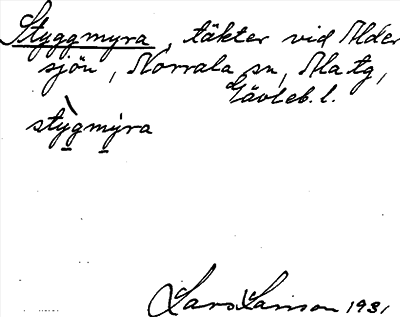 Styggmyra, täkter vid Alder
sjön, Norrala sn, Ala tg,
Gävleb. l.
stỳgmýra
Lars Larsson 1931